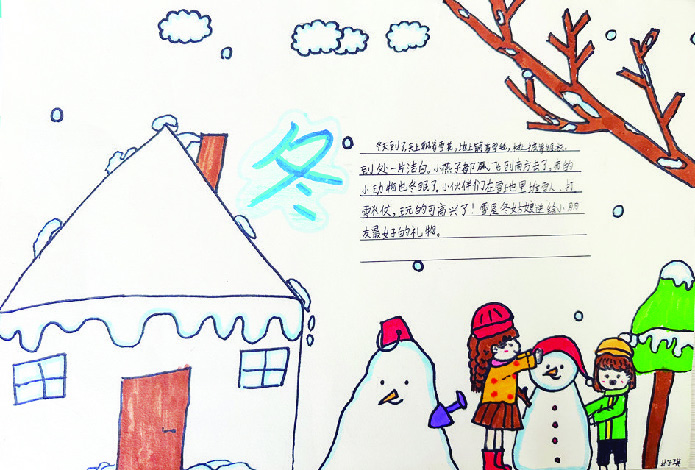 冬
冬到了,天上飘着雪花,地上铺着雪毯,
到处一片洁白。小燕子都飞到南方去了,有的
小动物也冬眠了。小伙伴们在雪地里堆雪人、打
雪仗,玩的可高兴了!雪是冬姑娘送给小朋
友最好的礼物。